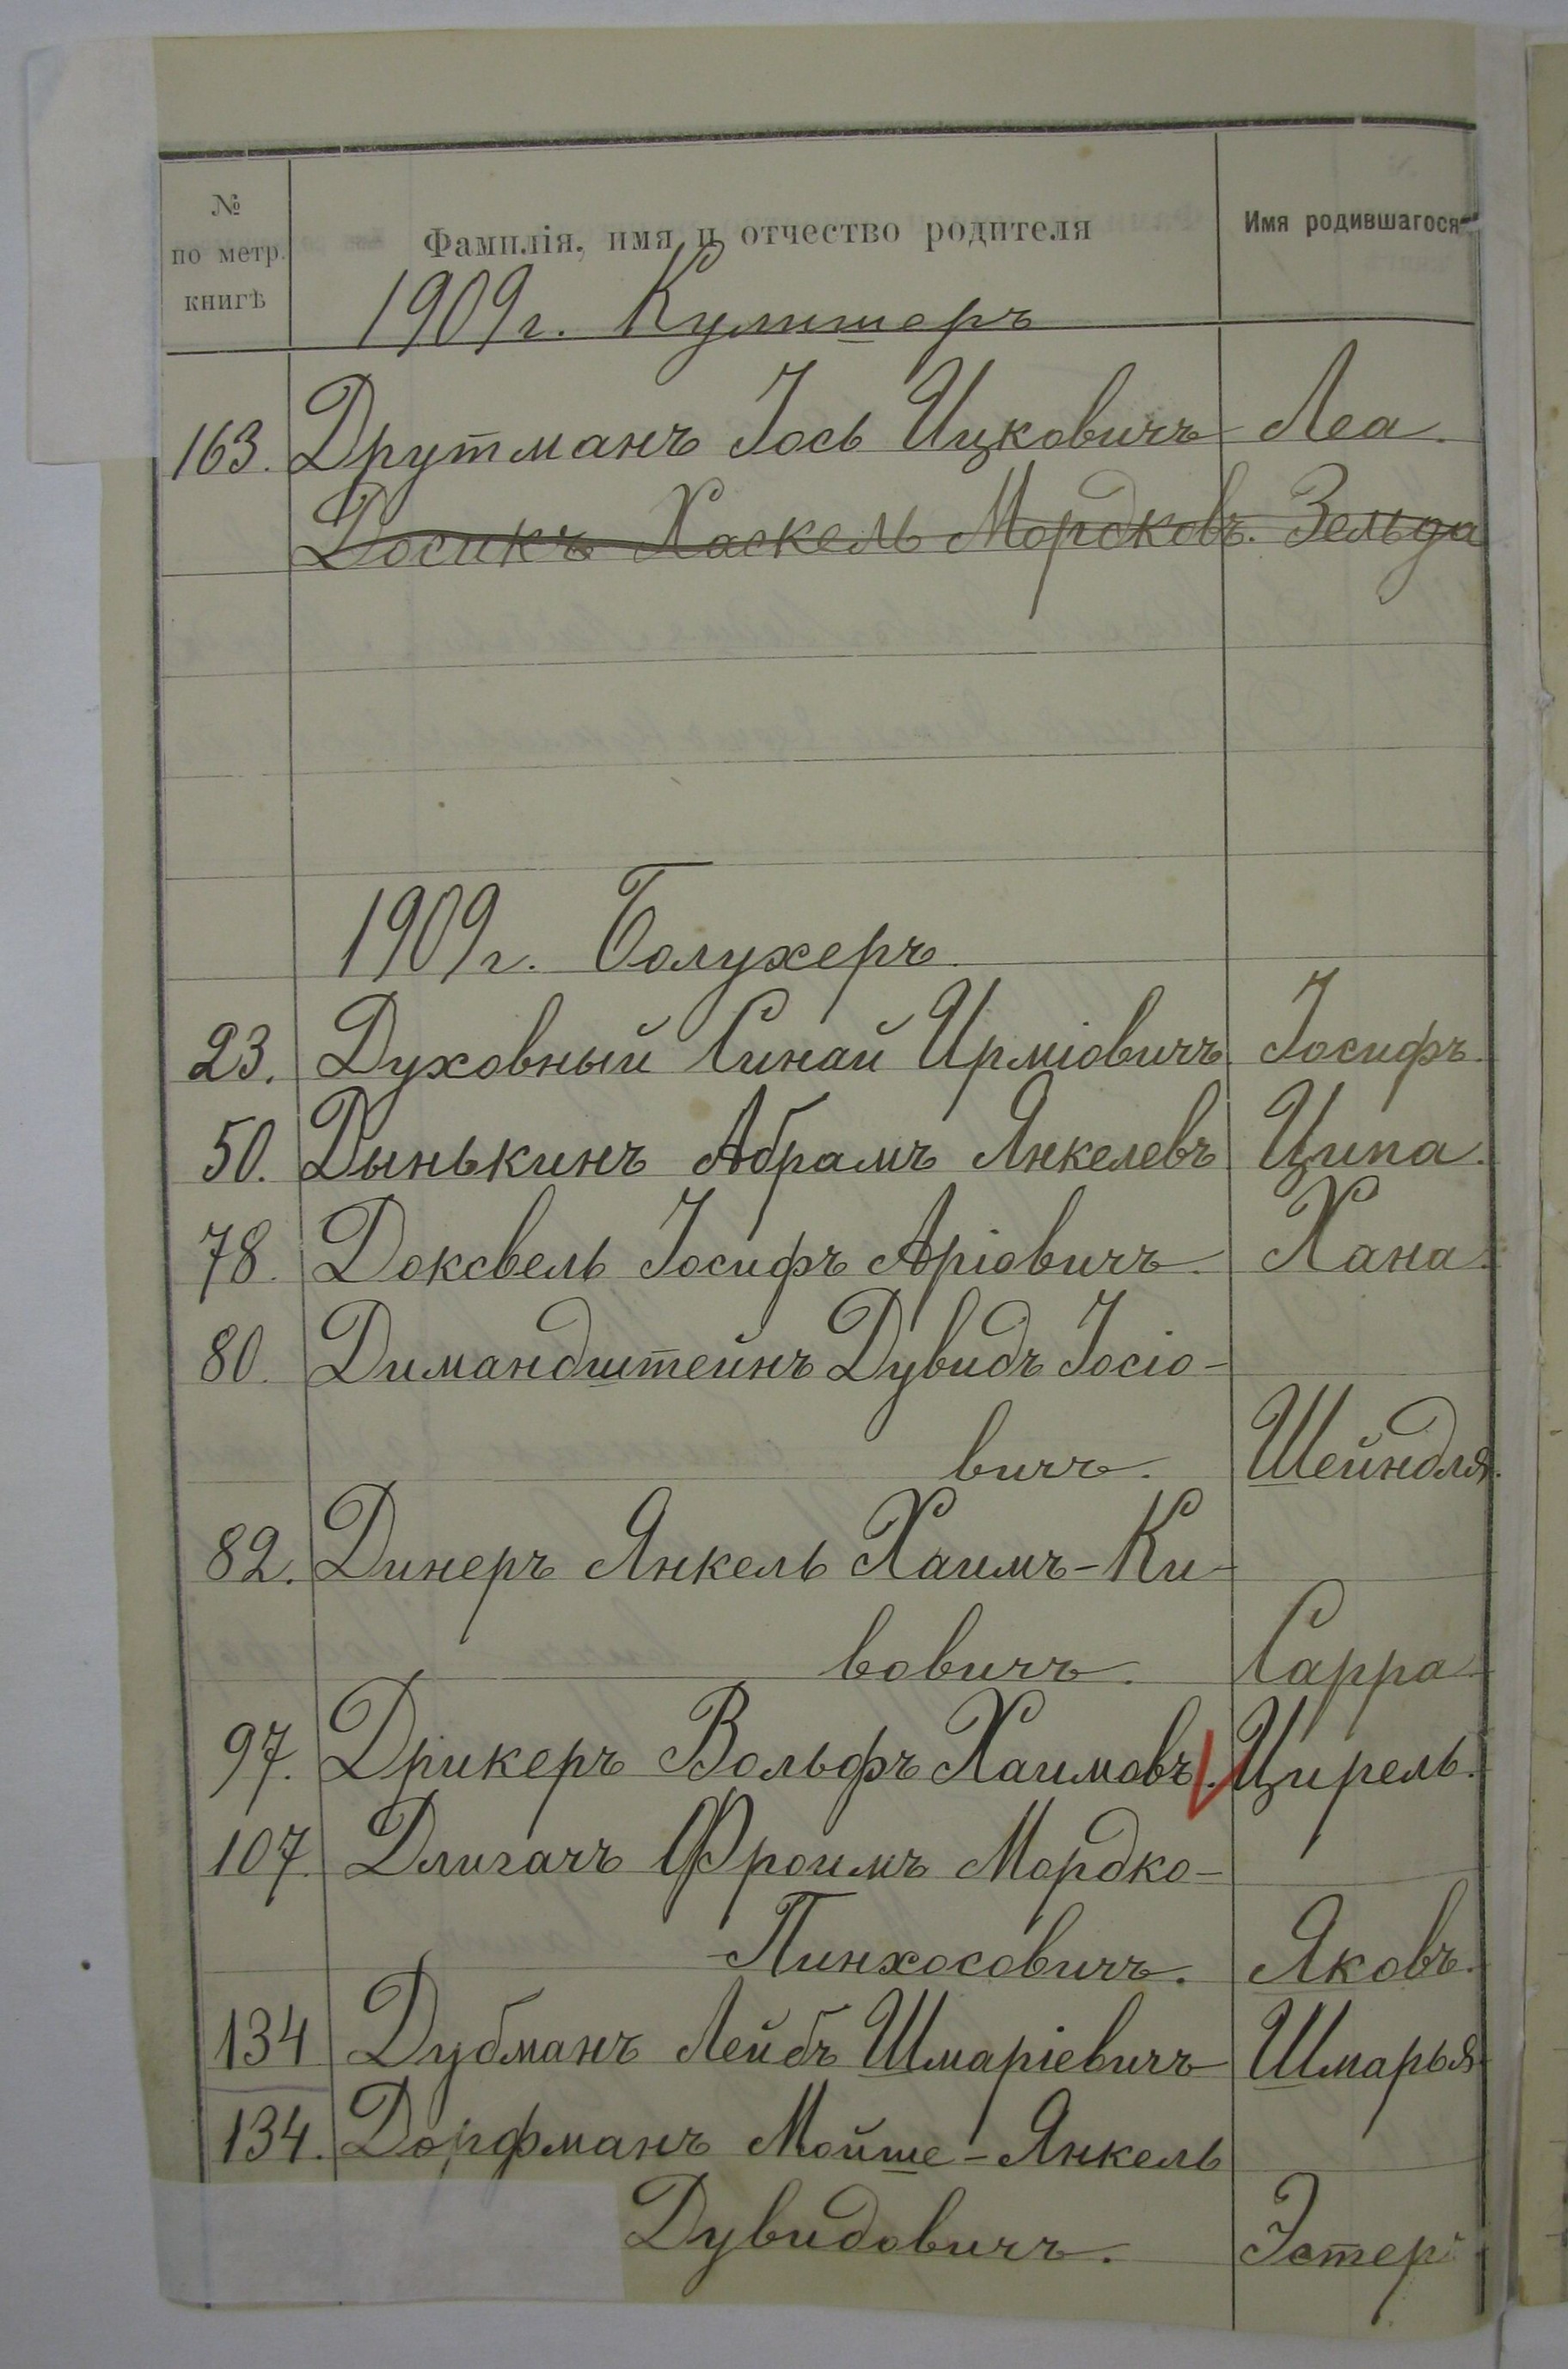 № по метр. книгѣ Фамилія, имя и отчество родителя Имя родившагося
1909 г. Кулишеръ
163. Друтманъ Іось Ицковичъ Леа.
Досикъ Хаскель Мордковъ. Зельда
1909 г. Болухеръ
23. Духовный Синай Ирміовичъ. Іосифъ.
50. Дынькинъ Абрамъ Янкелевъ Ципа.
78. Доксвель Іосифъ Аріовичъ. Хана.
80. Димандштейнъ Дувидъ Іосіо-
вичъ. Шейндля.
82. Динеръ Янкель Хаимъ-Ки-
вовичъ. Сарра
97. Дрикеръ Вольфъ Хаимовъ. Цирель.
107. Длигачъ Фроимъ Мордко-
-Пинхосовичъ. Яковъ.
134 Дубманъ Лейбъ Шмаріевичъ Шмарья
134. Дорфманъ Мойше-Янкель
Дувидовичъ. Эстеръ